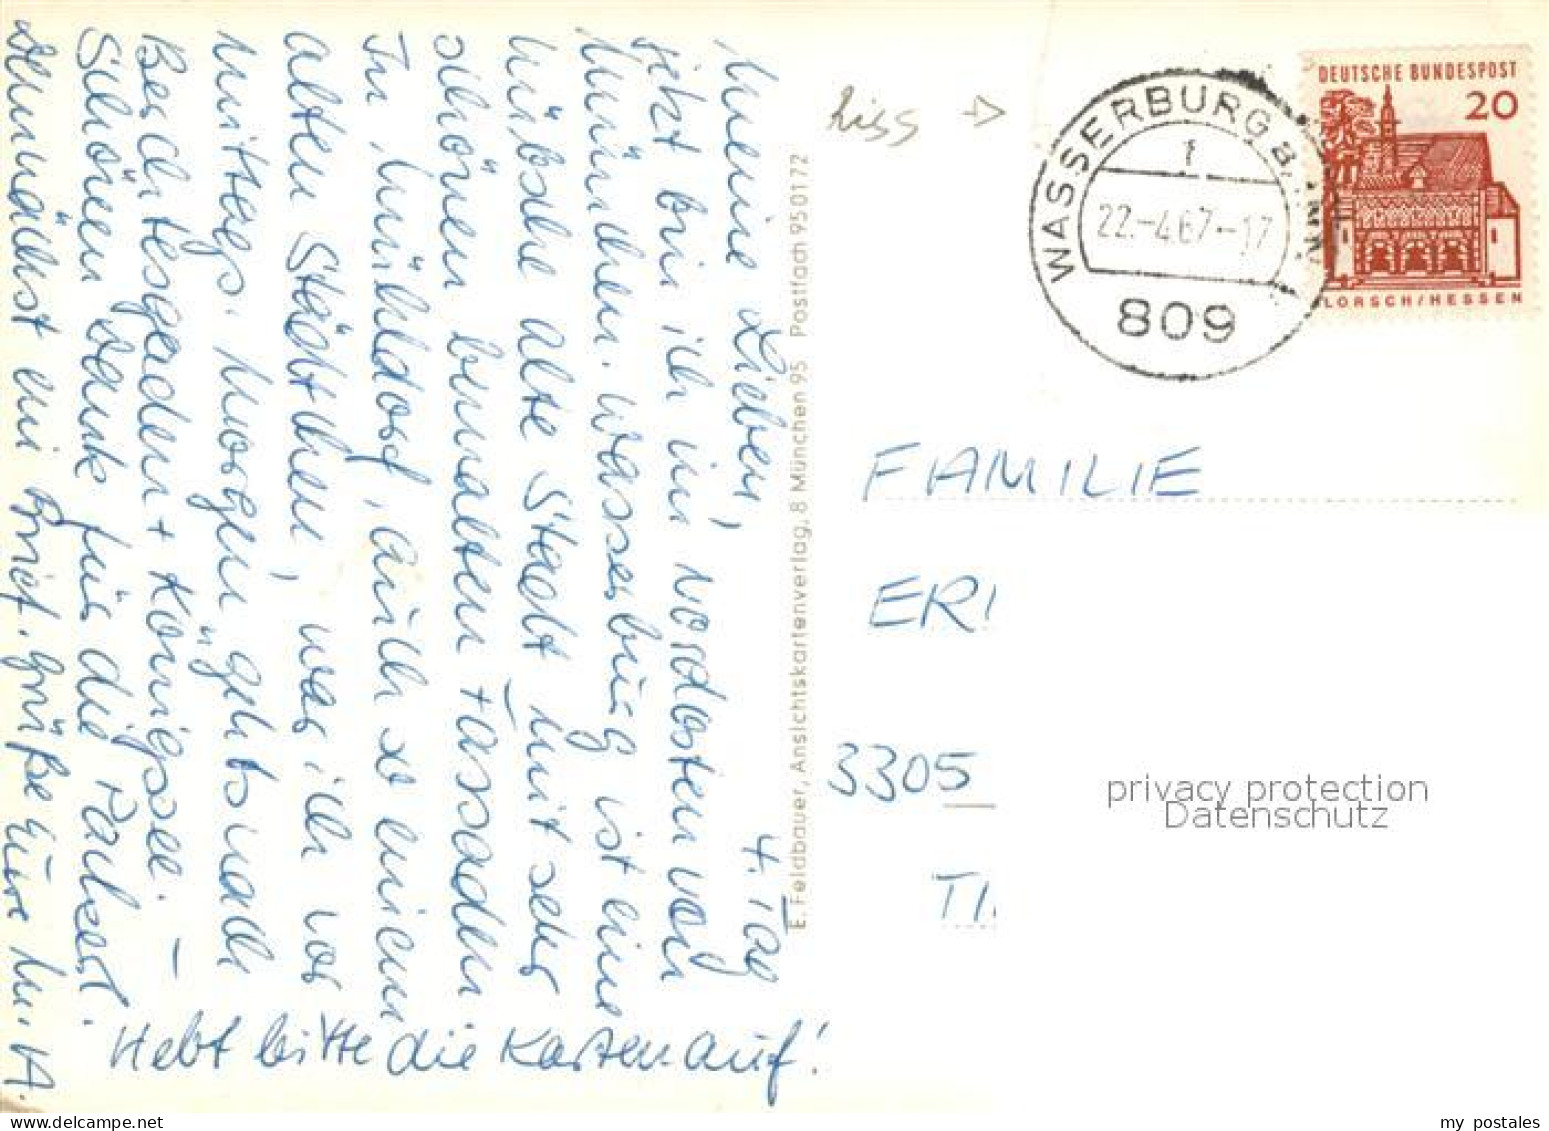 Meine Lieben, 4. Tag
jetzt bin ich im Nordosten von
München. Wasserburg ist eine
hübsche alte Stadt mit sehr
schönen bemalten Fassaden
In Mühldorf, auch so einem
alten Städtchen, war ich vor
mittags. Morgen geht's nach
Berchtesgaden + Königssee. –
Schönen Dank für die Karten.
Demnächst ein Brief. Grüße Eure M. A.
Hebt bitte die Karten auf!
E. Feldbauer, Ansichtskartenverlag, 8 München 95 Postfach 950172
Riss
WASSERBURG a. INN
f
22.-4.67.-17
809
DEUTSCHE BUNDESPOST
20
LORSCH/HESSEN
FAMILIE
ER
3305
privacy protection
Datenschutz
my postales